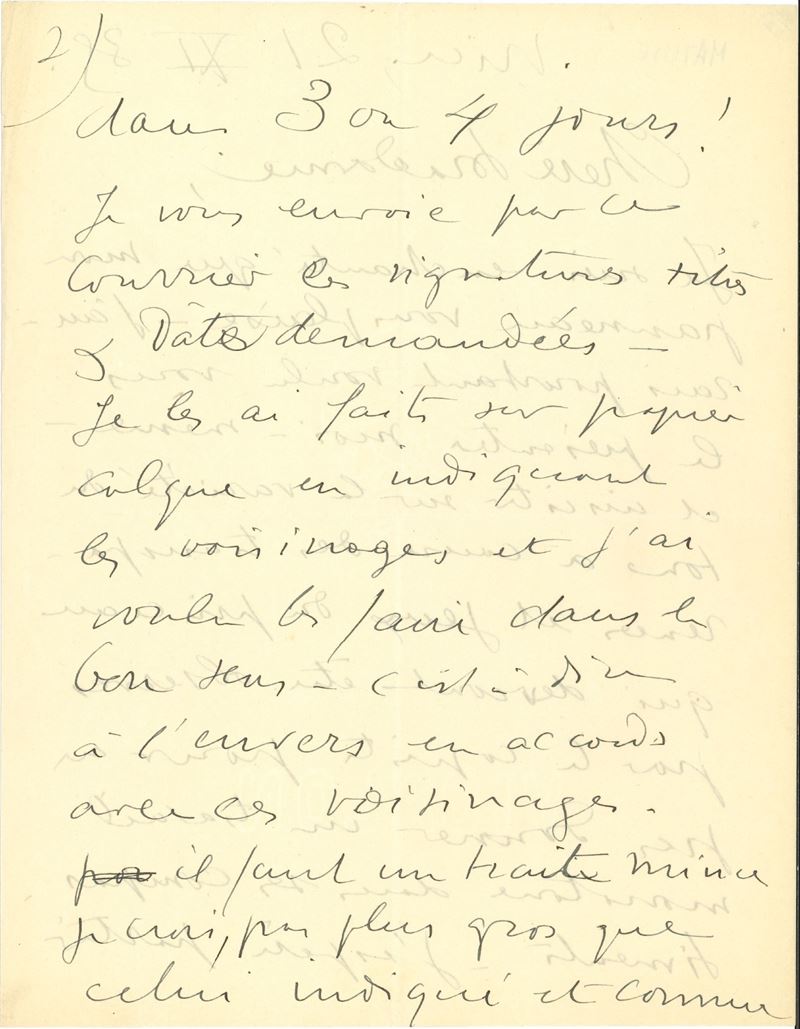 2)
dans 3 ou 4 jours !
Je vous envoie par ce
Courrier les signatures titres
& Dates demandées —
Je les ai faits sur papier
calque en indiquant
les voisinages et j'ai
voulu les faire dans le
bon sens — c'est à dire
à l'envers en accords
avec ces voisinages.
il faut un trait mince
je crois, pas plus gros que
celui indiqué et comme